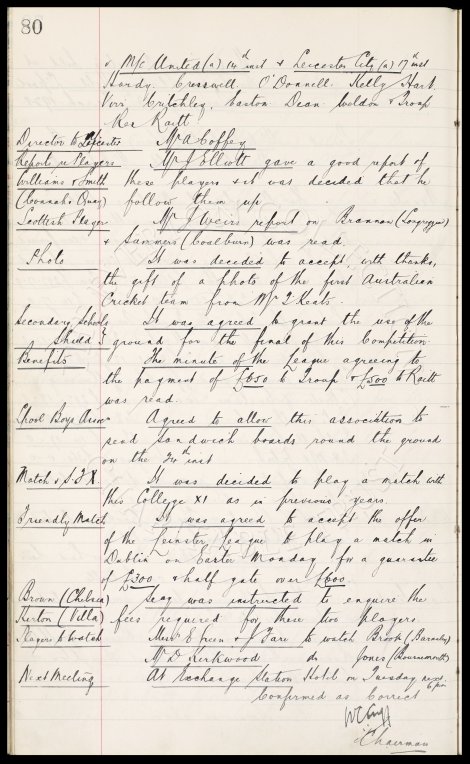 80
v M/c United (a) 14th inst & Leicester City (a) 17th inst
Hardy. Cresswell. O'Donnell. Kelly Hart.
Virr, Critchley, Easton Dean Weldon & Troup
Res Raitt
Director to Leicester Mr A Coffey
Reports re Players Mr J Elliott gave a good report of
Williams & Smith these players & it was decided that he
(Connahs Quay) follow them up
Scottish Players Mr J Weirs report on Brannan (Longriggend)
& Summers (Coalburn) was read.
Photo It was decided to accept, with thanks,
the gift of a photo of the first Australian
Cricket team from Mr J Keats.
Secondary Schools It was agreed to grant the use of the
Shield ground for the final of this Competition
Benefits The minute of the League agreeing to
the payment of £650 to Troup & £500 to Raitt
was read.
School Boys Assocn Agreed to allow this association to
send sandwich boards round the ground
on the 24th inst
Match v S.F.X. It was decided to play a match with
this College XI as in previous years.
Friendly Match It was agreed to accept the offer
of the Leinster League to play a match in
Dublin on Easter Monday for a guarantee
of £300 & half gate over £600.
Brown (Chelsea) Secy was instructed to enquire the
Kerton (Villa) fees required for these two players
Players to Watch Messrs E Green & J Fare to watch Brook (Barnsley)
Mr D Kirkwood do Jones (Bournemouth)
Next Meeting At Exchange Station Hotel on Tuesday next
6 pm
Confirmed as Correct
Chairman